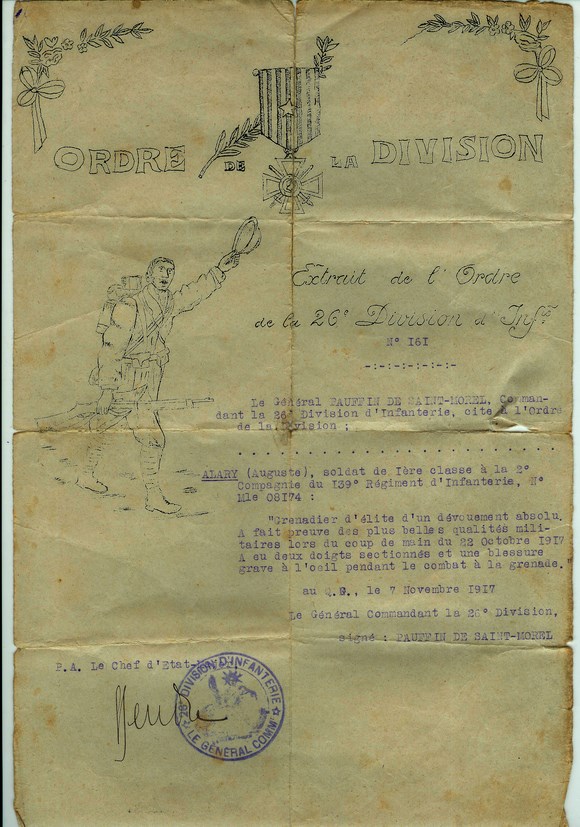 ORDRE DE LA DIVISION
Extrait de l'Ordre
de la 26e Division d'Infie
N° I6I
-:-:-:-:-:-:-
Le Général PAUFFIN DE SAINT-MOREL, Comman-
dant la 26° Division d'Infanterie, cite à l'Ordre
de la Division ;
ALARY (Auguste), soldat de Ière classe à la 2°
Compagnie du I39° Régiment d'Infanterie, N°
Mle 08I74 :
"Grenadier d'élite d'un dévouement absolu.
A fait preuve des plus belles qualités mili-
taires lors du coup de main du 22 Octobre I9I7
A eu deux doigts sectionnés et une blessure
grave à l'oeil pendant le combat à la grenade."
au Q.G., le 7 Novembre I9I7
Le Général Commandant la 26° Division,
signé : PAUFFIN DE SAINT-MOREL
P.A. Le Chef d'Etat-
26e DIVISION D'INFANTERIE
LE GÉNÉRAL COMMt